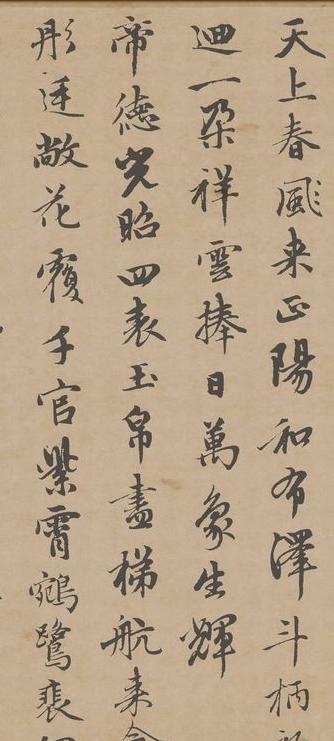 天上春風來正陽和布澤斗柄
迴一朵祥雲捧日萬象生輝
帝德光昭四表玉帛盡梯航來
彤廷敞花覆千官紫霄鵷鷺裴